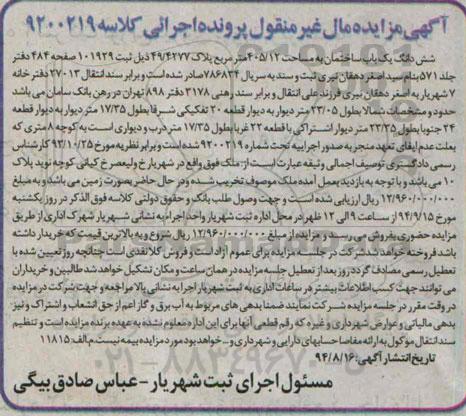 آگهی مزایده مال غیر منقول پرونده اجرائی کلاسه ۹۲۰۰۲۱۹
شش دانگ یک باب ساختمان به مساحت ۴۰۵/۱۲ متر مربع پلاک ۴۹/۴۲۷۷ ذیل ثبت ۱۰۱۹۲۹ صفحه ۴۸۴ دفتر
جلد ۵۷۱ بنام سید اصغر دهقان نیری ثبت و سند به سریال ۷۸۶۸۳۴ صادر شده است و برابر سند انتقال ۲۷۰۱۳ دفتر خانه
۷ شهریار به اصغر دهقان نیری فرزند علی انتقال و برابر سند رهنی ۳۱۷۸ دفتر ۸۹۸ تهران در رهن بانک سامان می باشد
حدود و مشخصات شمالا بطول ۲۳/۰۵ متر دیوار به دیوار قطعه ۲۰ تفکیکی شرقا بطول ۱۷/۳۵ متر دیوار به دیوار قطعه
۲۴ جنوبا بطول ۲۳/۲۵ متر دیوار اشتراکی با قطعه ۲۲ غربا بطول ۱۷/۳۵ متر درب و دیواری است به کوچه ۸ متری که
بعلت عدم ایفای تعهد منجر به صدور اجراییه تحت شماره ۹۲۰۰۲۱۹ شده است و برابر نظریه مورخ ۹۲/۱۰/۲۵ کارشناس
رسمی دادگستری توصیف اجمالی وثیقه عبارت است از: ملک فوق واقع در شهریار خ ولیعصر خ کیانی کوچه نوید پلاک
۱۰ می باشد و با توجه به بازدید بعمل آمده ملک موصوف تخریب شده و در حال حاضر بصورت زمین می باشد و به مبلغ
۱۲/۹۶۰/۰۰۰/۰۰۰ ریال ارزیابی شده است و جهت وصول طلب بانک و حقوق دولتی کلاسه فوق الذکر در روز یکشنبه
مورخ ۹۴/۹/۱۵ از ساعت ۹ الی ۱۲ ظهر در محل اداره ثبت شهریار واحد اجراء به نشانی شهریار شهرک اداری از طریق
مزایده حضوری بفروش می رسد و مزایده از مبلغ ۱۲/۹۶۰/۰۰۰/۰۰۰ ریال شروع و به بالاترین قیمت که خریدار داشته
باشد فروخته خواهد شد شرکت در جلسه مزایده برای عموم آزاد است و فروش کلا نقدی است چنانچه روز تعیین شده با
تعطیل رسمی مصادف گردد روز بعد از تعطیل جلسه مزایده در همان ساعت و مکان تشکیل خواهد شد طالبین و خریداران
می توانند جهت کسب اطلاعات بیشتر در ساعات اداری به ثبت شهریار اجرا به نشانی بالا مراجعه و جهت شرکت در مزایده
در وقت مقرر در جلسه مزایده شرکت نمایند ضمنا بدهی های مربوط به آب برق و گاز اعم از حق انشعاب و اشتراک و نیز
بدهی مالیاتی و عوارض شهرداری و غیره که رقم قطعی آنها برای این اداره معلوم نشده به عهده برنده مزایده است و تنظیم
سند انتقال موکول به ارائه مفاصا حسابهای دارایی و شهرداری و... خواهد بود مورد مزایده بیمه نیست. م الف ۱۱۸۱۵
تاریخ انتشار آگهی: ۹۴/۸/۱۶
مسئول اجرای ثبت شهریار - عباس صادق بیگی